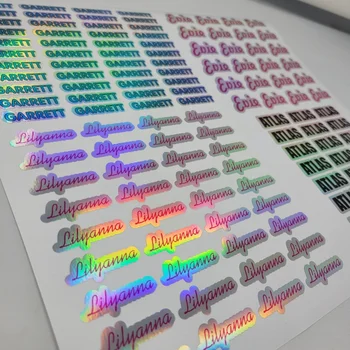 GARRETT GARRETT GARRETT
GARRETT GARRETT GARRETT GARRETT
GARRETT GARRETT GARRETT GARRETT
GARRETT GARRETT GARRETT GARRETT
GARRETT GARRETT GARRETT GARRETT
GARRETT GARRETT GARRETT GARRETT
GARRETT GARRETT GARRETT GARRETT
GARRETT GARRETT GARRETT GARRETT
Evia Evia Evia Evia
Evia Evia Evia Evia
Evia Evia Evia Evia
Evia Evia Evia Evia
Evia Evia Evia Evia
ATLAS ATLAS
ATLAS ATLAS
ATLAS ATLAS
ATLAS ATLAS
ATLAS ATLAS
Lilyanna Lilyanna Lilyanna Lilyanna
Lilyanna Lilyanna Lilyanna Lilyanna
Lilyanna Lilyanna Lilyanna Lilyanna
Lilyanna Lilyanna Lilyanna Lilyanna
Lilyanna Lilyanna Lilyanna Lilyanna
Lilyanna Lilyanna Lilyanna Lilyanna
Lilyanna Lilyanna Lilyanna Lilyanna
Lilyanna Lilyanna Lilyanna Lilyanna
Lilyanna Lilyanna Lilyanna